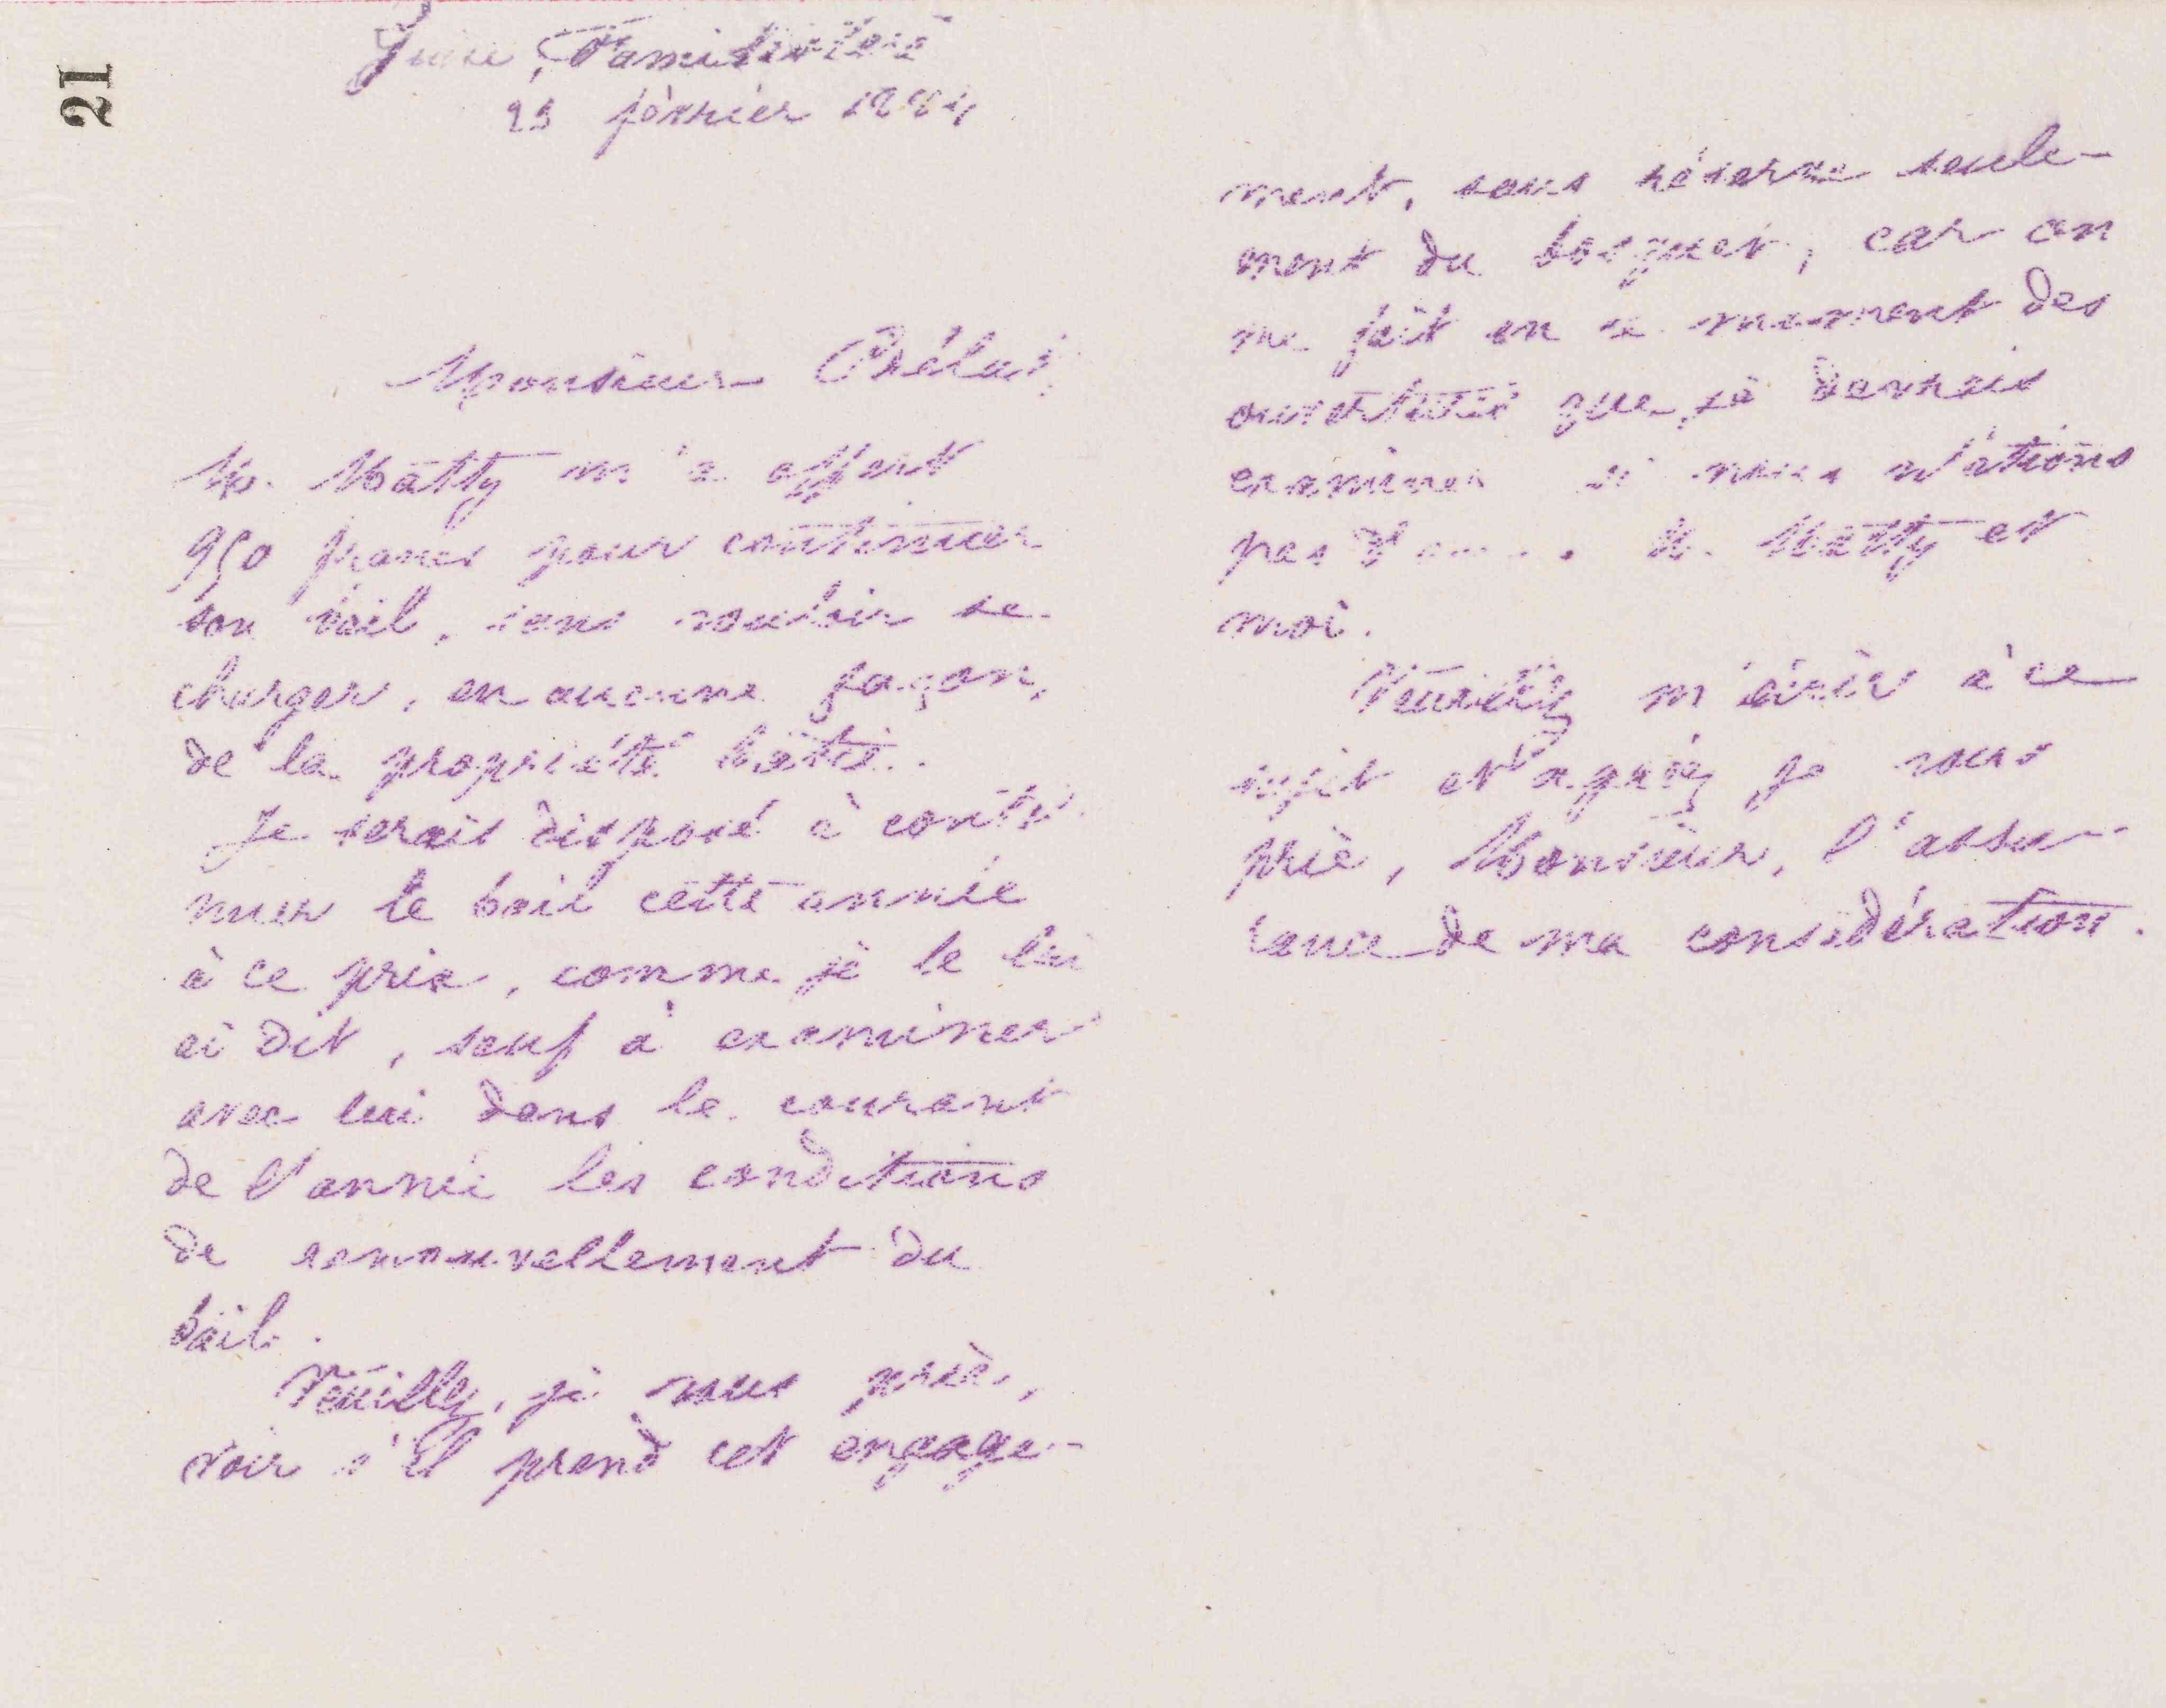 21
Guise, Familistère
25 février
Monsieur Prélat,
M. Mâtty m'a offert
950 francs pour continuer
son bail, sans vouloir se
charger, en aucune façon,
de la propriété bâtie.
Je serais disposé à conti-
nuer le bail cette année
à ce prix, comme je le lui
ai dit, sauf à examiner
avec lui dans le courant
de l'année les conditions
de renouvellement du
bail.
Veuillez, je vous prie,
voir s'il prend cet engage-
ment, sous réserve seule-
ment du bosquet, car on
me fait en ce moment des
ouvertures que je devrais
examiner si nous n'étions
pas M. Mâtty et
moi.
Veuillez m'écrire à ce
sujet et agréez, je vous
prie, Monsieur, l'assu-
rance de ma considération.